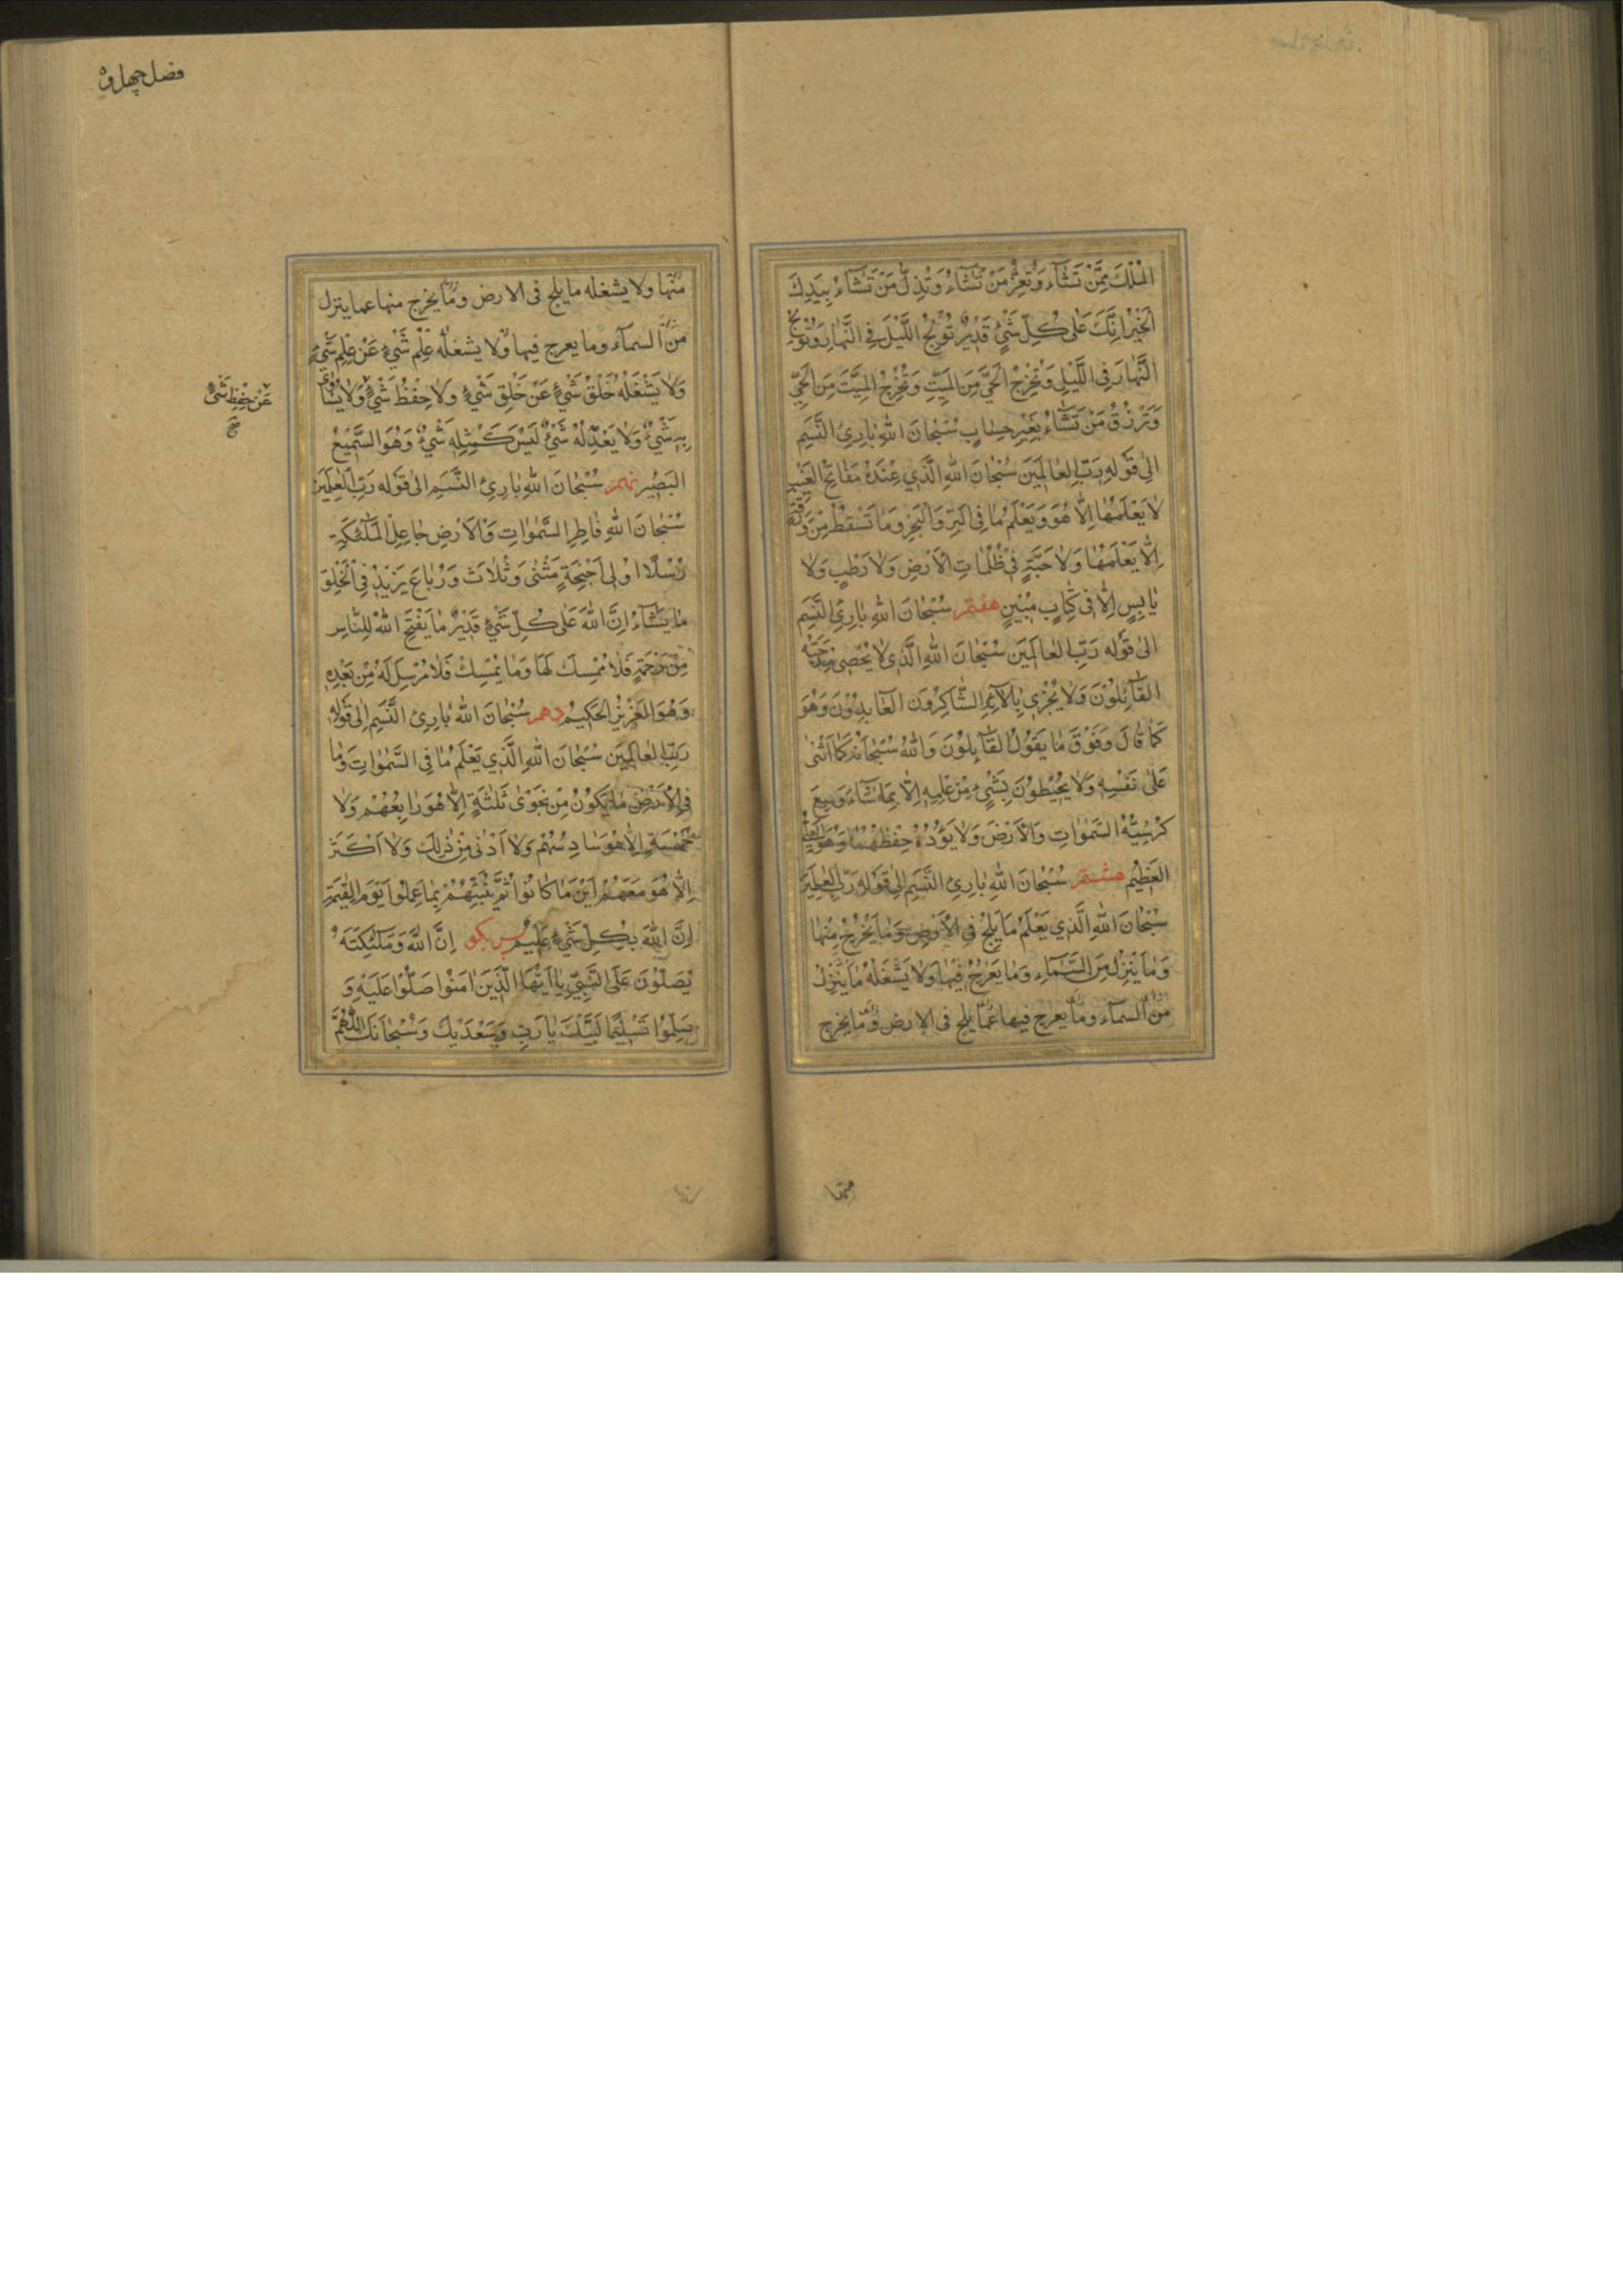 الْمُلْكَ مِمَّنْ تَشَآءُ وَتُعِزُّ مَنْ تَشَآءُ وَتُذِلُّ مَنْ تَشَآءُ بِيَدِكَ
الْخَيْرُ اِنَّكَ عَلٰى كُلِّ شَيْءٍ قَدِيْرٌ تُوْلِجُ اللَّيْلَ فِي النَّهٰارِ وَتُوْلِجُ
النَّهٰارَ فِي اللَّيْلِ وَتُخْرِجُ الْحَيَّ مِنَ الْمَيِّتِ وَتُخْرِجُ الْمَيِّتَ مِنَ الْحَيِّ
وَتَرْزُقُ مَنْ تَشٰآءُ بِغَيْرِ حِسٰابٍ سُبْحٰانَ اللهِ بٰارِئِ النَّسَمِ
اِلٰى قَوْلِهِ رَبِّ الْعٰالَمِيْنَ سُبْحٰانَ اللهِ الَّذِي عِنْدَهُ مَفٰاتِحُ الْغَيْبِ
لاٰ يَعْلَمُهٰا اِلاّٰ هُوَ وَيَعْلَمُ مٰا فِي الْبَرِّ وَالْبَحْرِ وَمٰا تَسْقُطُ مِنْ وَرَقَةٍ
اِلاّٰ يَعْلَمُهٰا وَلاٰ حَبَّةٍ فِي ظُلُمٰاتِ الْاَرْضِ وَلاٰ رَطْبٍ وَلاٰ
يٰابِسٍ اِلاّٰ فِي كِتٰابٍ مُبِيْنٍ هفتم سُبْحٰانَ اللهِ بٰارِئِ النَّسَمِ
اِلٰى قَوْلِهِ رَبِّ الْعٰالَمِيْنَ سُبْحٰانَ اللهِ الَّذِي لاٰ يُحْصِي مِدْحَتَهُ
الْقٰآئِلُوْنَ وَلاٰ يَجْزِي بِاٰلاٰئِهِ الشّٰاكِرُونَ الْعٰابِدُوْنَ وَهُوَ
كَمٰا قٰالَ وَفَوْقَ مٰا يَقُوْلُ الْقٰآئِلُوْنَ وَاللهُ سُبْحٰانَهُ كَمٰا اَثْنٰى
عَلٰى نَفْسِهِ وَلاٰ يُحِيْطُوْنَ بِشَيْءٍ مِنْ عِلْمِهِ اِلاّٰ بِمٰا شٰآءَ وَسِعَ
كُرْسِيُّهُ السَّمٰوٰاتِ وَالْاَرْضَ وَلاٰ يَؤُدُهُ حِفْظُهُمٰا وَهُوَ الْعَلِيُّ
الْعَظِيْمُ هشتم سُبْحٰانَ اللهِ بٰارِئِ النَّسَمِ اِلٰى قَوْلِهِ رَبِّ الْعٰلَمِيْنَ
سُبْحٰانَ اللهِ الَّذِي يَعْلَمُ مٰا يَلِجُ فِي الْاَرْضِ وَمٰا يَخْرُجُ مِنْهٰا
وَمٰا يَنْزِلُ مِنَ السَّمٰآءِ وَمٰا يَعْرُجُ فِيْهٰا وَلاٰ يَشْغَلُهُ مٰا يَنْزِلُ
من السمآء وما يعرج فيها عما يلج فى الارض وما يخرج
منها
فصل چهل و
منها ولا يشغله ما يلج فى الارض وما يخرج منها عما ينزل
من السمآء وما يعرج فيها ولا يشغله عِلْمُ شَيْءٍ عَنْ عِلْمِ شَيْءٍ
وَلاٰ يَشْغَلُهُ خَلْقُ شَيْءٍ عَنْ خَلْقِ شَيْءٍ وَلاٰ حِفْظُ شَيْءٍ وَلاٰ يُسٰاوِي
عَنْ حِفْظِ شَيْءٍ
صح
بِهِ شَيْءٌ وَلاٰ يَعْدِلُهُ شَيْءٌ لَيْسَ كَمِثْلِهِ شَيْءٌ وَهُوَ السَّمِيْعُ
الْبَصِيْرُ نهم سُبْحٰانَ اللهِ بٰارِئِ النَّسَمِ الى قَوْلِه رَبِّ الْعٰلَمِيْنَ
سُبْحٰانَ اللهِ فٰاطِرِ السَّمٰوٰاتِ وَالْاَرْضِ جٰاعِلِ الْمَلٰٓئِكَةِ
رُسُلًا اُولِى اَجْنِحَةٍ مَثْنٰى وَثُلاٰثَ وَرُبٰاعَ يَزِيْدُ فِي الْخَلْقِ
مٰا يَشٰآءُ اِنَّ اللهَ عَلٰى كُلِّ شَيْءٍ قَدِيْرٌ مٰا يَفْتَحِ اللهُ لِلنّٰاسِ
مِنْ رَحْمَةٍ فَلاٰ مُمْسِكَ لَهٰا وَمٰا يُمْسِكْ فَلاٰ مُرْسِلَ لَهُ مِنْ بَعْدِهِ
وَهُوَ الْعَزِيْزُ الْحَكِيْمُ دهم سُبْحٰانَ اللهِ بٰارِئِ النَّسَمِ اِلٰى قَوْلِهِ
رَبِّ الْعٰالَمِيْنَ سُبْحٰانَ اللهِ الَّذِي يَعْلَمُ مٰا فِي السَّمٰوٰاتِ وَمٰا
فِي الْاَرْضِ مٰا يَكُوْنُ مِنْ نَجْوٰى ثَلٰثَةٍ اِلاّٰ هُوَ رٰابِعُهُمْ وَلاٰ
خَمْسَةٍ اِلاّٰ هُوَ سٰادِسُهُمْ وَلاٰ اَدْنٰى مِنْ ذٰلِكَ وَلاٰ اَكْثَرَ
اِلاّٰ هُوَ مَعَهُمْ اَيْنَ مٰا كٰانُوْا ثُمَّ يُنَبِّئُهُمْ بِمٰا عَمِلُوْا يَوْمَ الْقِيٰمَةِ
اِنَّ اللهَ بِكُلِّ شَيْءٍ عَلِيْمٌ پس بكو اِنَّ اللهَ وَمَلٰٓئِكَتَهُ
يُصَلُّوْنَ عَلَى النَّبِيِّ يٰا اَيُّهَا الَّذِيْنَ اٰمَنُوْا صَلُّوْا عَلَيْهِ وَ
سَلِّمُوْا تَسْلِيْمًا لَبَّيْكَ يٰا رَبِّ وَسَعْدَيْكَ وَسُبْحٰانَكَ اللّٰهُمَّ